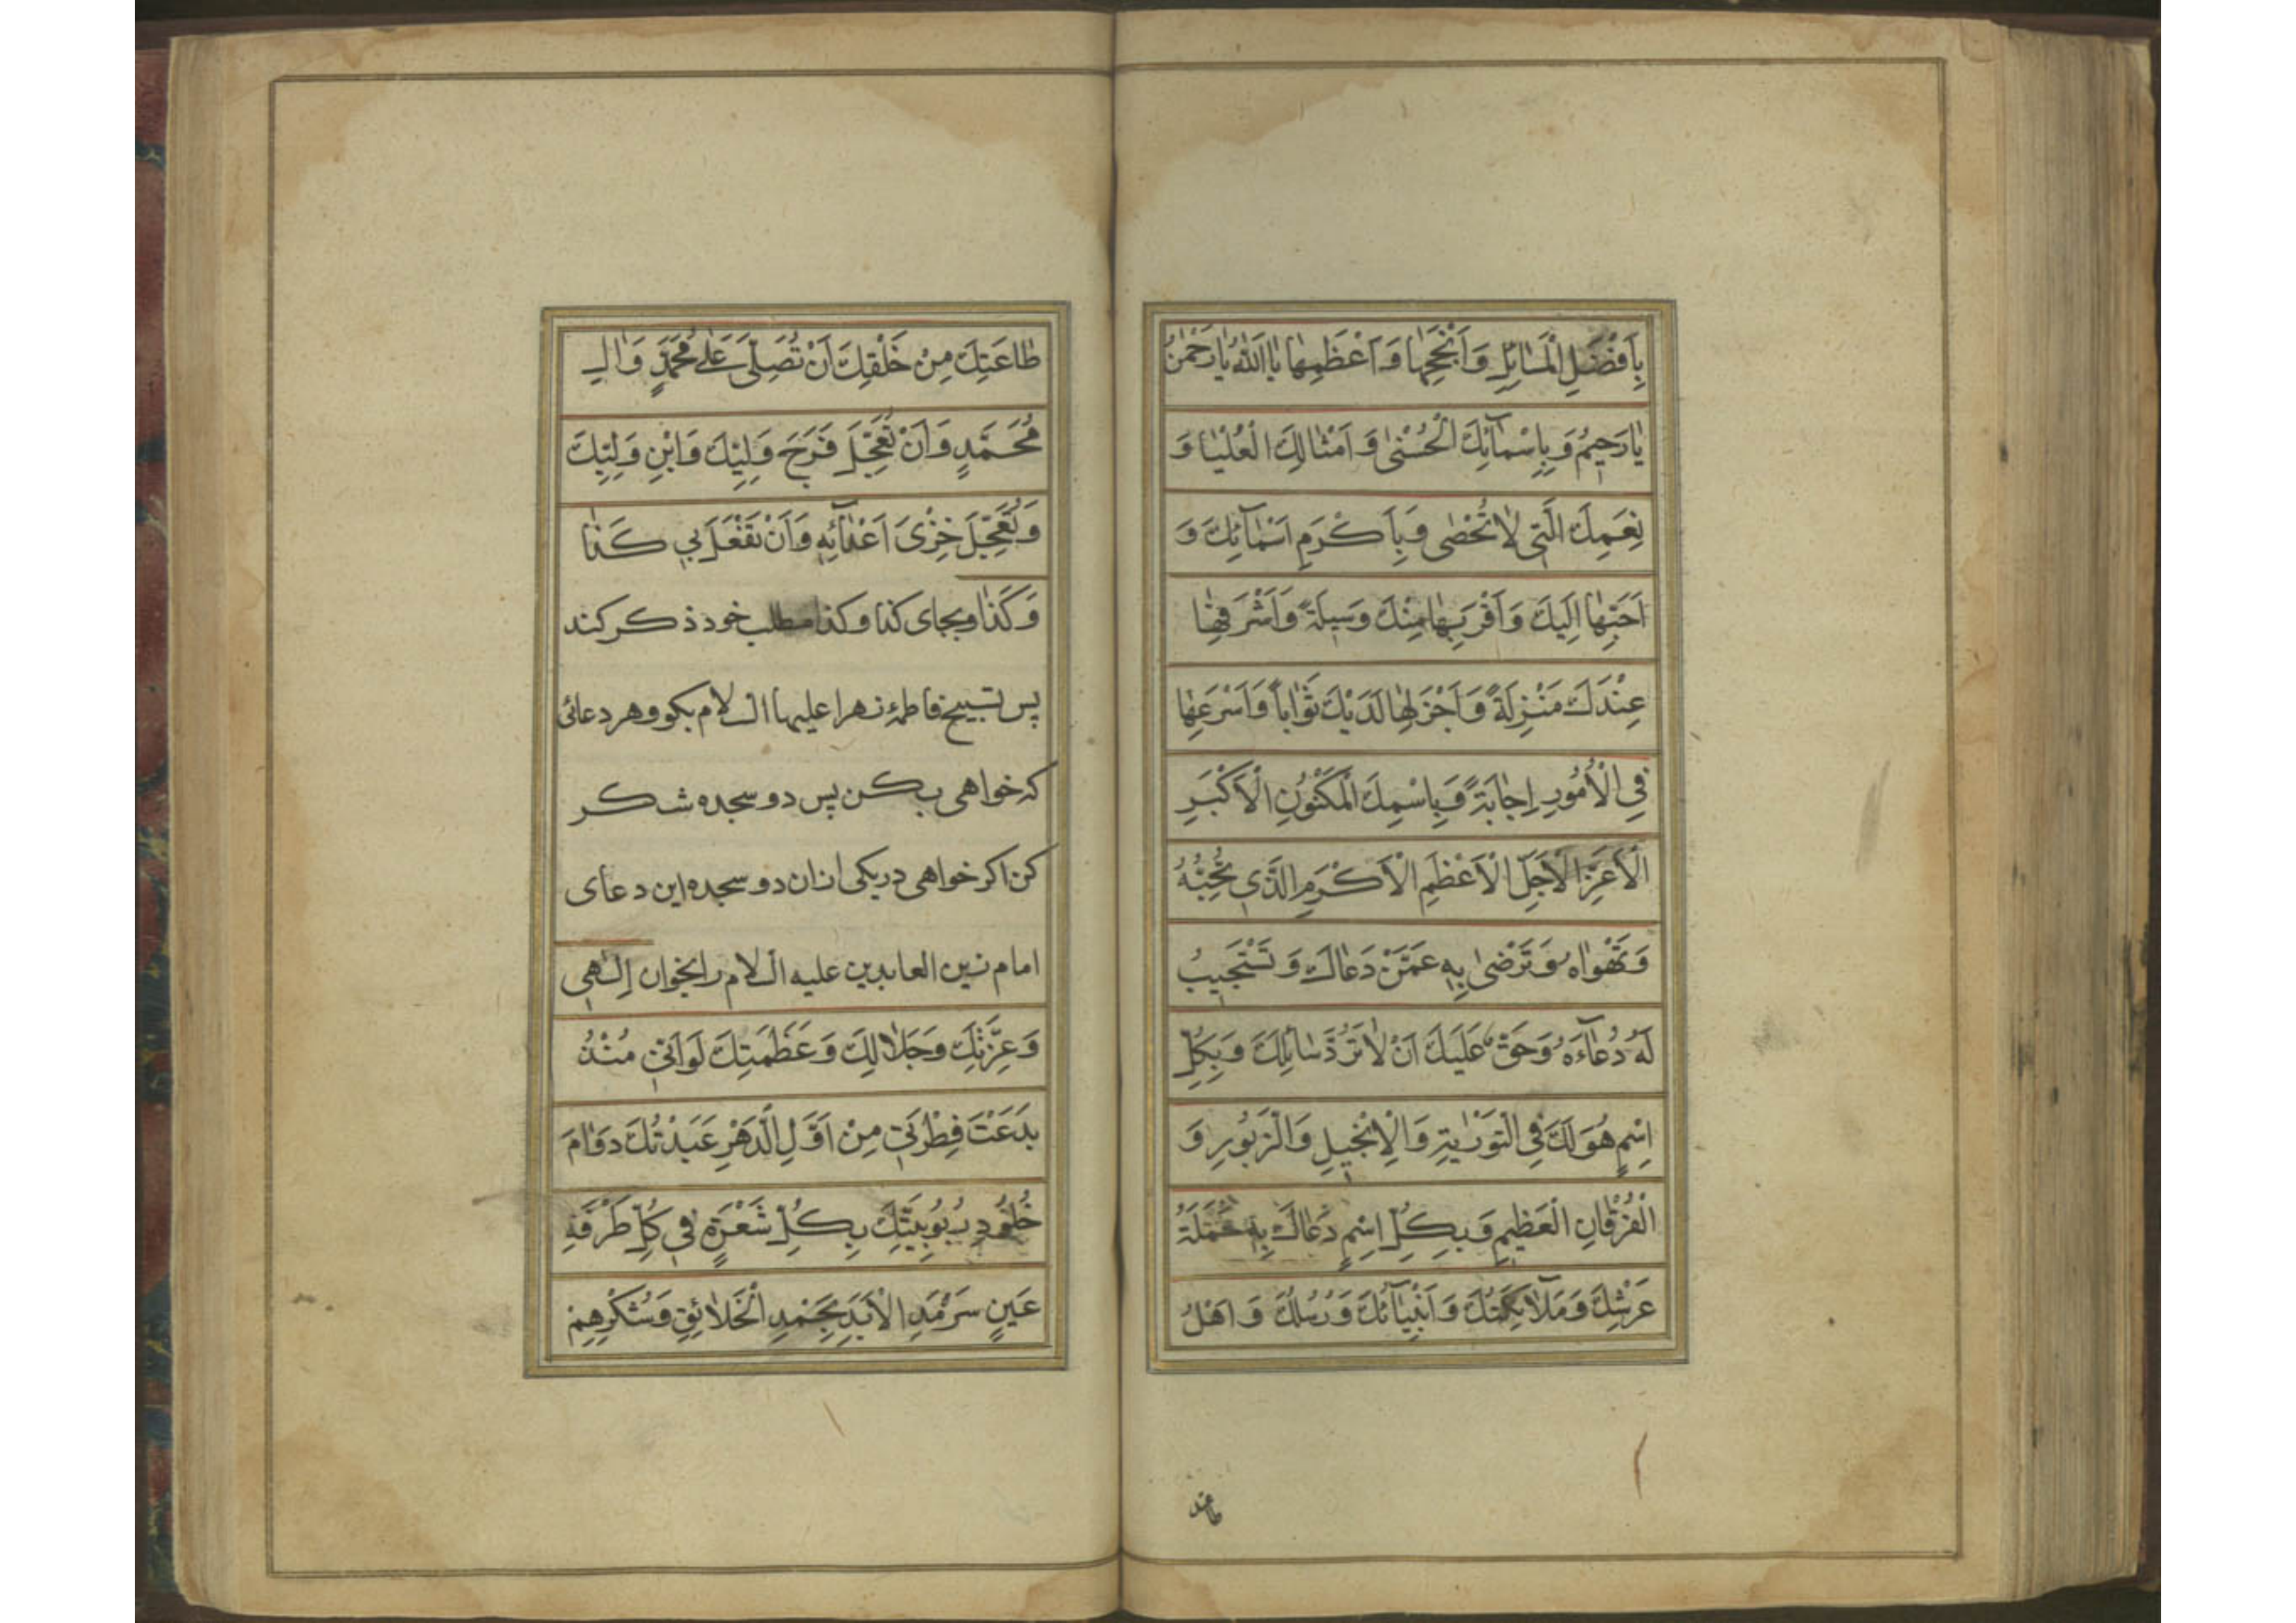 بِاَفْضَلِ الْمَسٰائِلِ وَاَنْجَحِهٰا وَاَعْظَمِهٰا يٰا اَللّٰهُ يٰا رَحْمٰنُ
يٰا رَحيمُ وَبِاَسْمآئِكَ الْحُسْنىٰ وَاَمْثٰالِكَ الْعُلْيٰا وَ
نِعَمِكَ الَّتى لٰا تُحْصٰى وَبِاَكْرَمِ اَسْمآئِكَ وَ
اَحَبِّهٰا اِلَيكَ وَاَقْرَبِهٰا مِنْكَ وَسيلَةً وَاَشْرَفِهٰا
عِنْدَكَ مَنْزِلَةً وَاَجْزَلِهٰا لَدَيْكَ ثَوٰاباً وَاَسْرَعِهٰا
فِى الْاُمُورِ اِجٰابَةً وَبِاسْمِكَ الْمَكْنُونِ الْاَكْبَرِ
الْاَعَزِّ الْاَجَلِّ الْاَعْظَمِ الْاَكْرَمِ الَّذى تُحِبُّهُ
وَتَهْوٰاهُ وَتَرْضىٰ بِهِ عَمَّنْ دَعٰاكَ وَتَسْتَجيبُ
لَهُ دُعآءَهُ وَحَقٌّ عَلَيكَ اَنْ لٰا تَرُدَّ سٰائِلَكَ وَبِكُلِّ
اِسْمٍ هُوَ لَكَ فِى التَّوْرٰيةِ وَالْاِنْجيلِ وَالزَّبُورِ وَ
الْفُرْقٰانِ الْعَظيمِ وَبِكُلِّ اِسْمٍ دَعٰاكَ بِهِ حَمَلَةُ
عَرْشِكَ وَمَلٰآئِكَتُكَ وَاَنْبِيٰآئُكَ وَرُسُلُكَ وَاَهْلُ
طاعتك
طٰاعَتِكَ مِنْ خَلْقِكَ اَنْ تُصَلِّىَ عَلىٰ مُحَمَّدٍ وَاٰلِ
مُحَمَّدٍ وَاَنْ تُعَجِّلَ فَرَجَ وَلِيِّكَ وَابْنِ وَلِيِّكَ
وَتُعَجِّلَ خِزْىَ اَعْدٰآئِهِ وَاَنْ تَفْعَلَ بى كَذٰا
وَكَذٰا وبجاى كذا وكذا مطلب خود ذكر كند
پس تسبيح فاطمهٔ زهرا عليها السلام بكو و هر دعائى
كه خواهى بكن پس دو سجده شكر
كن اكر خواهى در يكى ازان دو سجده اين دعاى
امام زين العابدين عليه السلام را بخوان اِلٰهى
وَعِزَّتِكَ وَجَلٰالِكَ وَعَظَمَتِكَ لَوْ اَنّى مُنْذُ
بَدَعْتَ فِطْرَتى مِنْ اَوَّلِ الدَّهْرِ عَبَدْتُكَ دَوٰامَ
خُلُودِ رُبُوبِيَّتِكَ بِكُلِّ شَعْرَةٍ فى كُلِّ طَرْفَةِ
عَينٍ سَرْمَدِ الْاَبَدِ بِحَمْدِ الْخَلٰائِقِ وَشُكْرِهِمْ